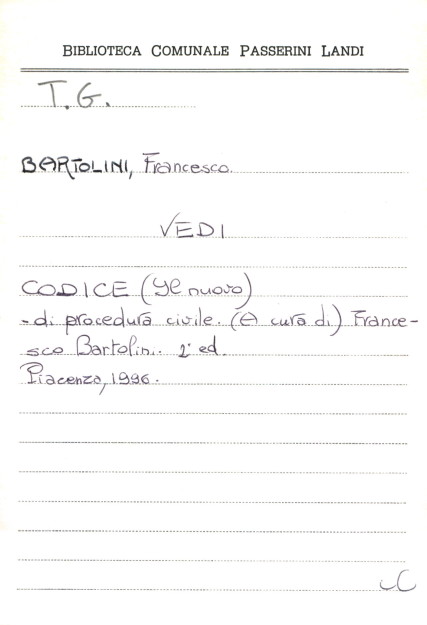 BIBLIOTECA COMUNALE PASSERINI LANDI
T.G.
BARTOLINI, Francesco.
VEDI
CODICE (Il nuovo)
- di procedura civile. (A cura di) France-
sco Bartolini. 2ª ed.
Piacenza, 1996.